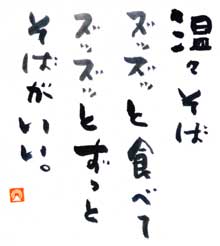 温々そば
ズッズッと食べて
ズッズッとずっと
そばがいい。